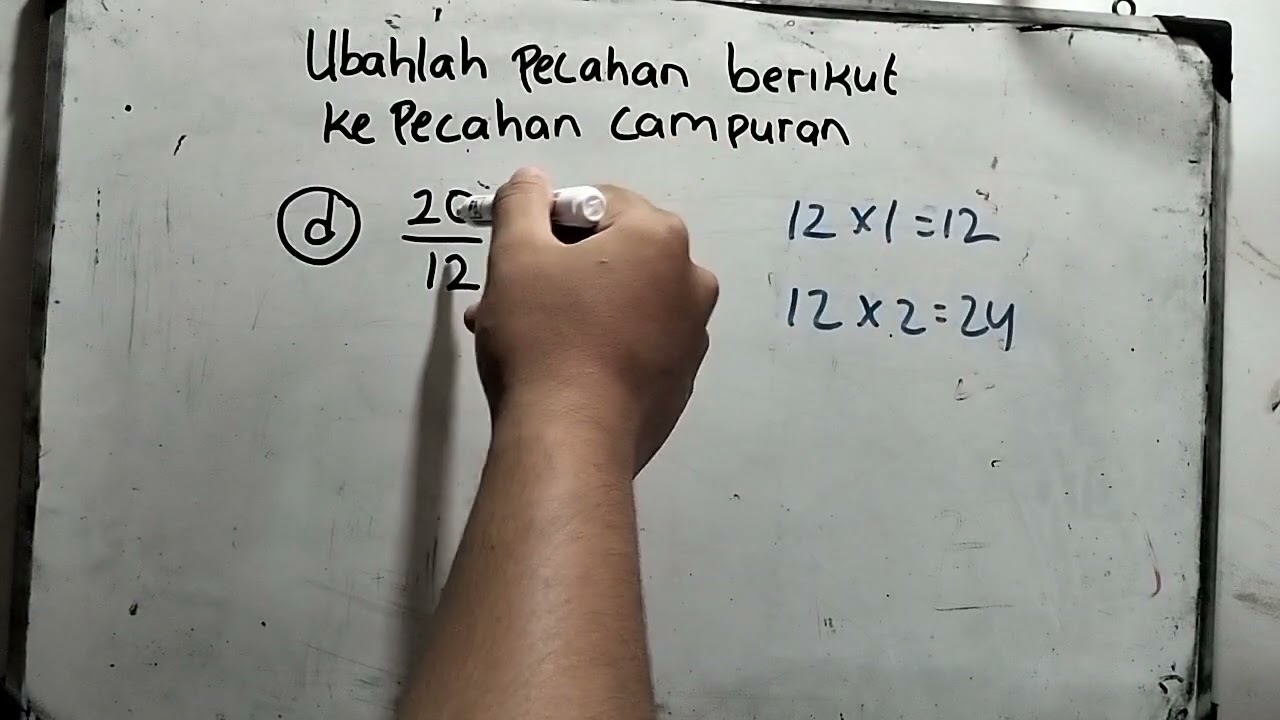 Ubahlah Pecahan berikut
ke Pecahan campuran
d
12
12 x 1 = 12
12 x 2 = 24